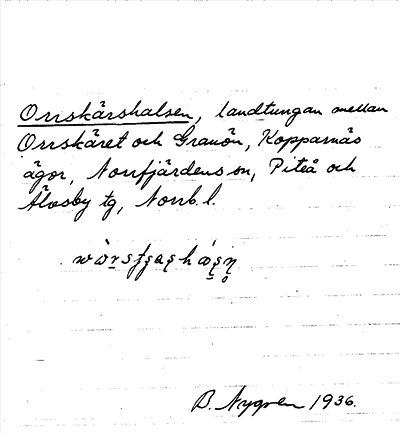 Orrskärshalsen, landtungan mellan
Orrskäret och Granön, Kopparnäs
ägor, Norrfjärdens sn, Piteå och
Älvsby tg, Norrb. l.
B. Nygren 1936.